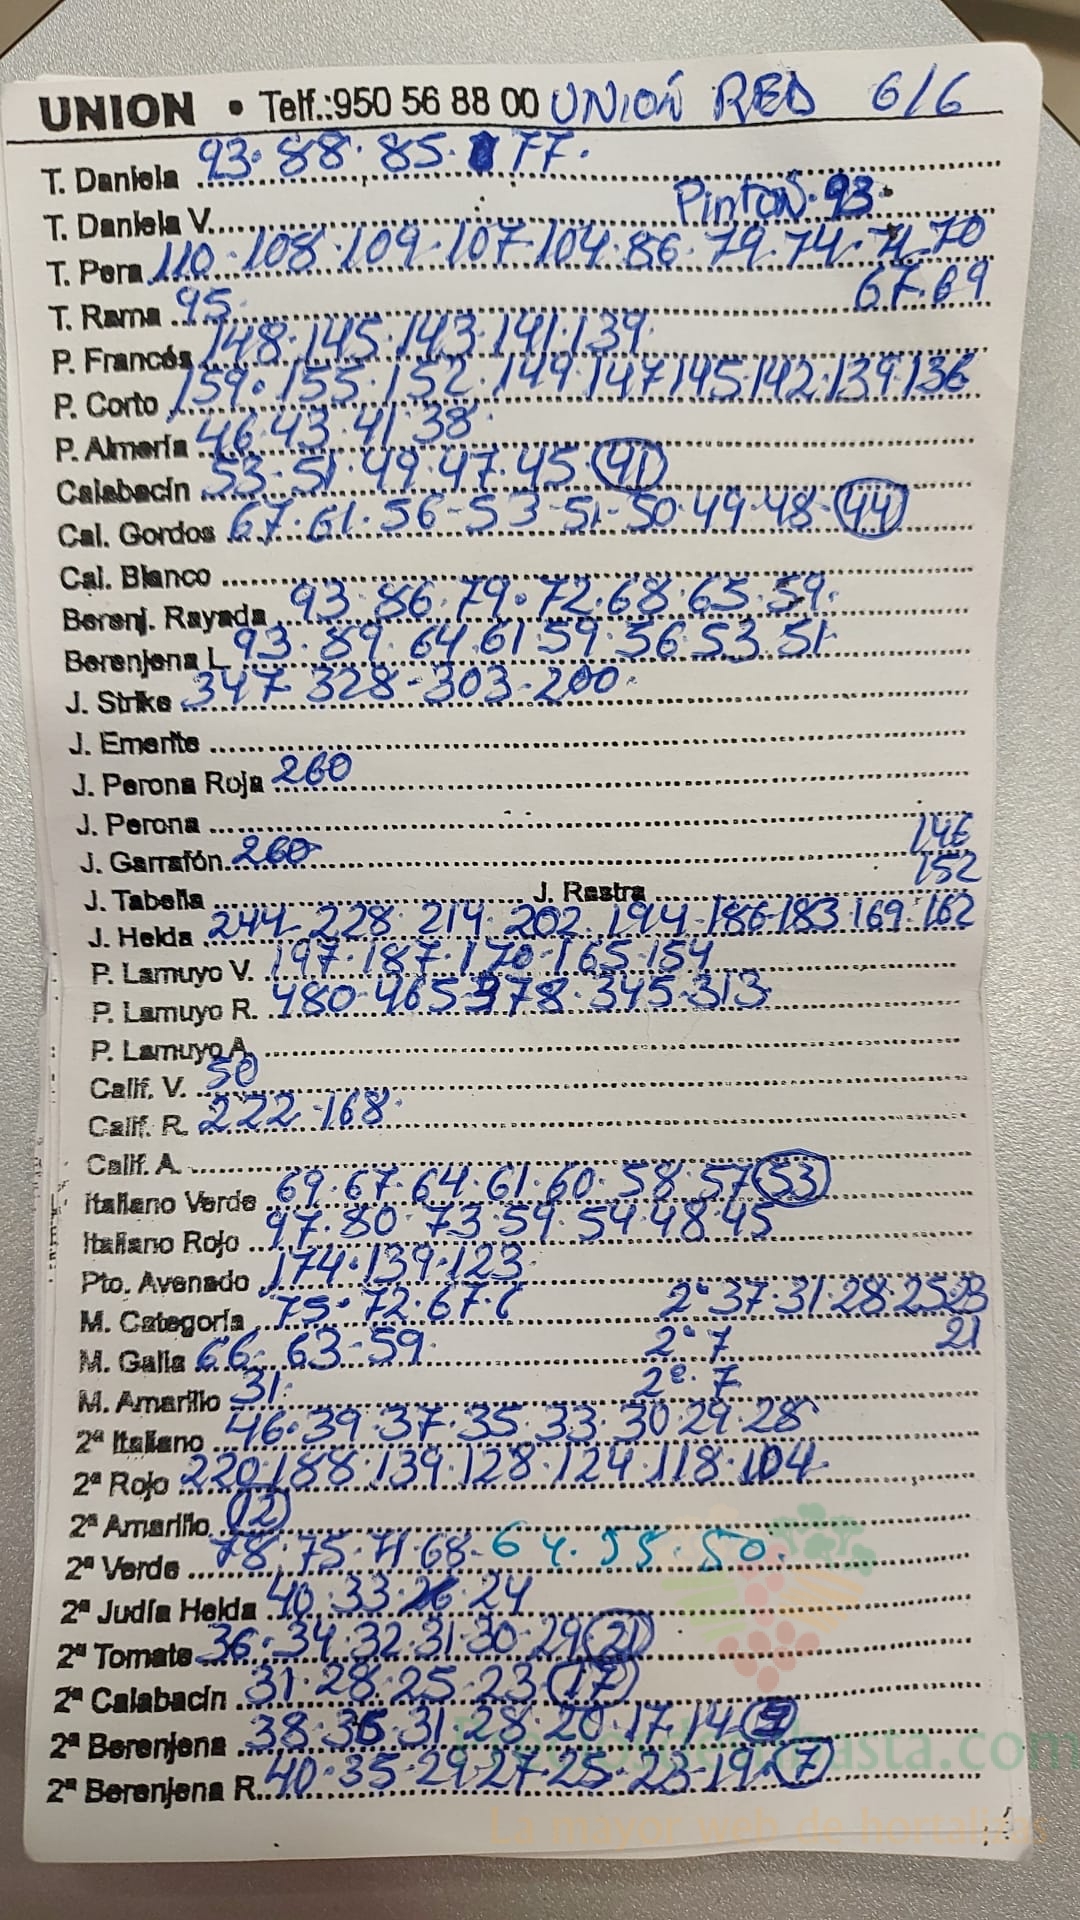 UNION • Telf.:950 56 88 00 UNIÓN RED 6/6
T. Daniela 93. 88. 85. 77.
T. Daniela V. Pintón. 93.
T. Pera 110. 108. 109. 107. 104. 86. 79. 74. 71. 70
67. 69
T. Rama 95.
P. Francés 148. 145. 143. 141. 139.
P. Corto 159. 155. 152. 149. 147 145. 142. 139. 136
P. Almería 46. 43. 41. 38.
Calabacín 53. 51. 49. 47. 45. 41
Cal. Gordos 67. 61. 56. 53. 51. 50. 49. 48. 44
Cal. Blanco
Berenj. Rayada 93. 86. 79. 72. 68. 65. 59.
Berenjena L. 93. 89. 64. 61. 59. 56. 53. 51.
J. Strike 347. 328. 303. 200.
J. Emerite
J. Perona Roja 260
J. Perona
146
J. Garrafón 260
152
J. Tabella J. Rastra
J. Helda 244. 228. 214. 202. 194. 186. 183. 169. 162
P. Lamuyo V. 197. 187. 170. 165. 154
P. Lamuyo R. 480. 465 378. 345. 313.
P. Lamuyo A.
Calif. V. 50
Calif. R. 222. 168.
Calif. A.
Italiano Verde 69. 67. 64. 61. 60. 58. 57 53
Italiano Rojo 97. 80. 73. 59. 54. 48. 45
Pto. Avenado 174. 139. 123.
M. Categoría 75. 72. 67. 2ª 37. 31. 28. 25. 23
21
M. Galia 66. 63. 59. 2ª 7
M. Amarillo 31. 2ª. 7
2ª Italiano 46. 39. 37. 35. 33. 30. 29. 28
2ª Rojo 220. 188. 139. 128. 124. 118. 104.
2ª Amarillo 12
2ª Verde 78. 75. 71. 68. 64. 55. 50.
2ª Judía Helda 40. 33. 26. 24
2ª Tomate 36. 34. 32. 31. 30. 29 21
2ª Calabacín 31. 28. 25. 23 17
2ª Berenjena 38. 36. 31. 28. 20. 17. 14
2ª Berenjena R. 40. 35. 29. 27. 25. 23. 19. 7
La mayor web de hortalizas